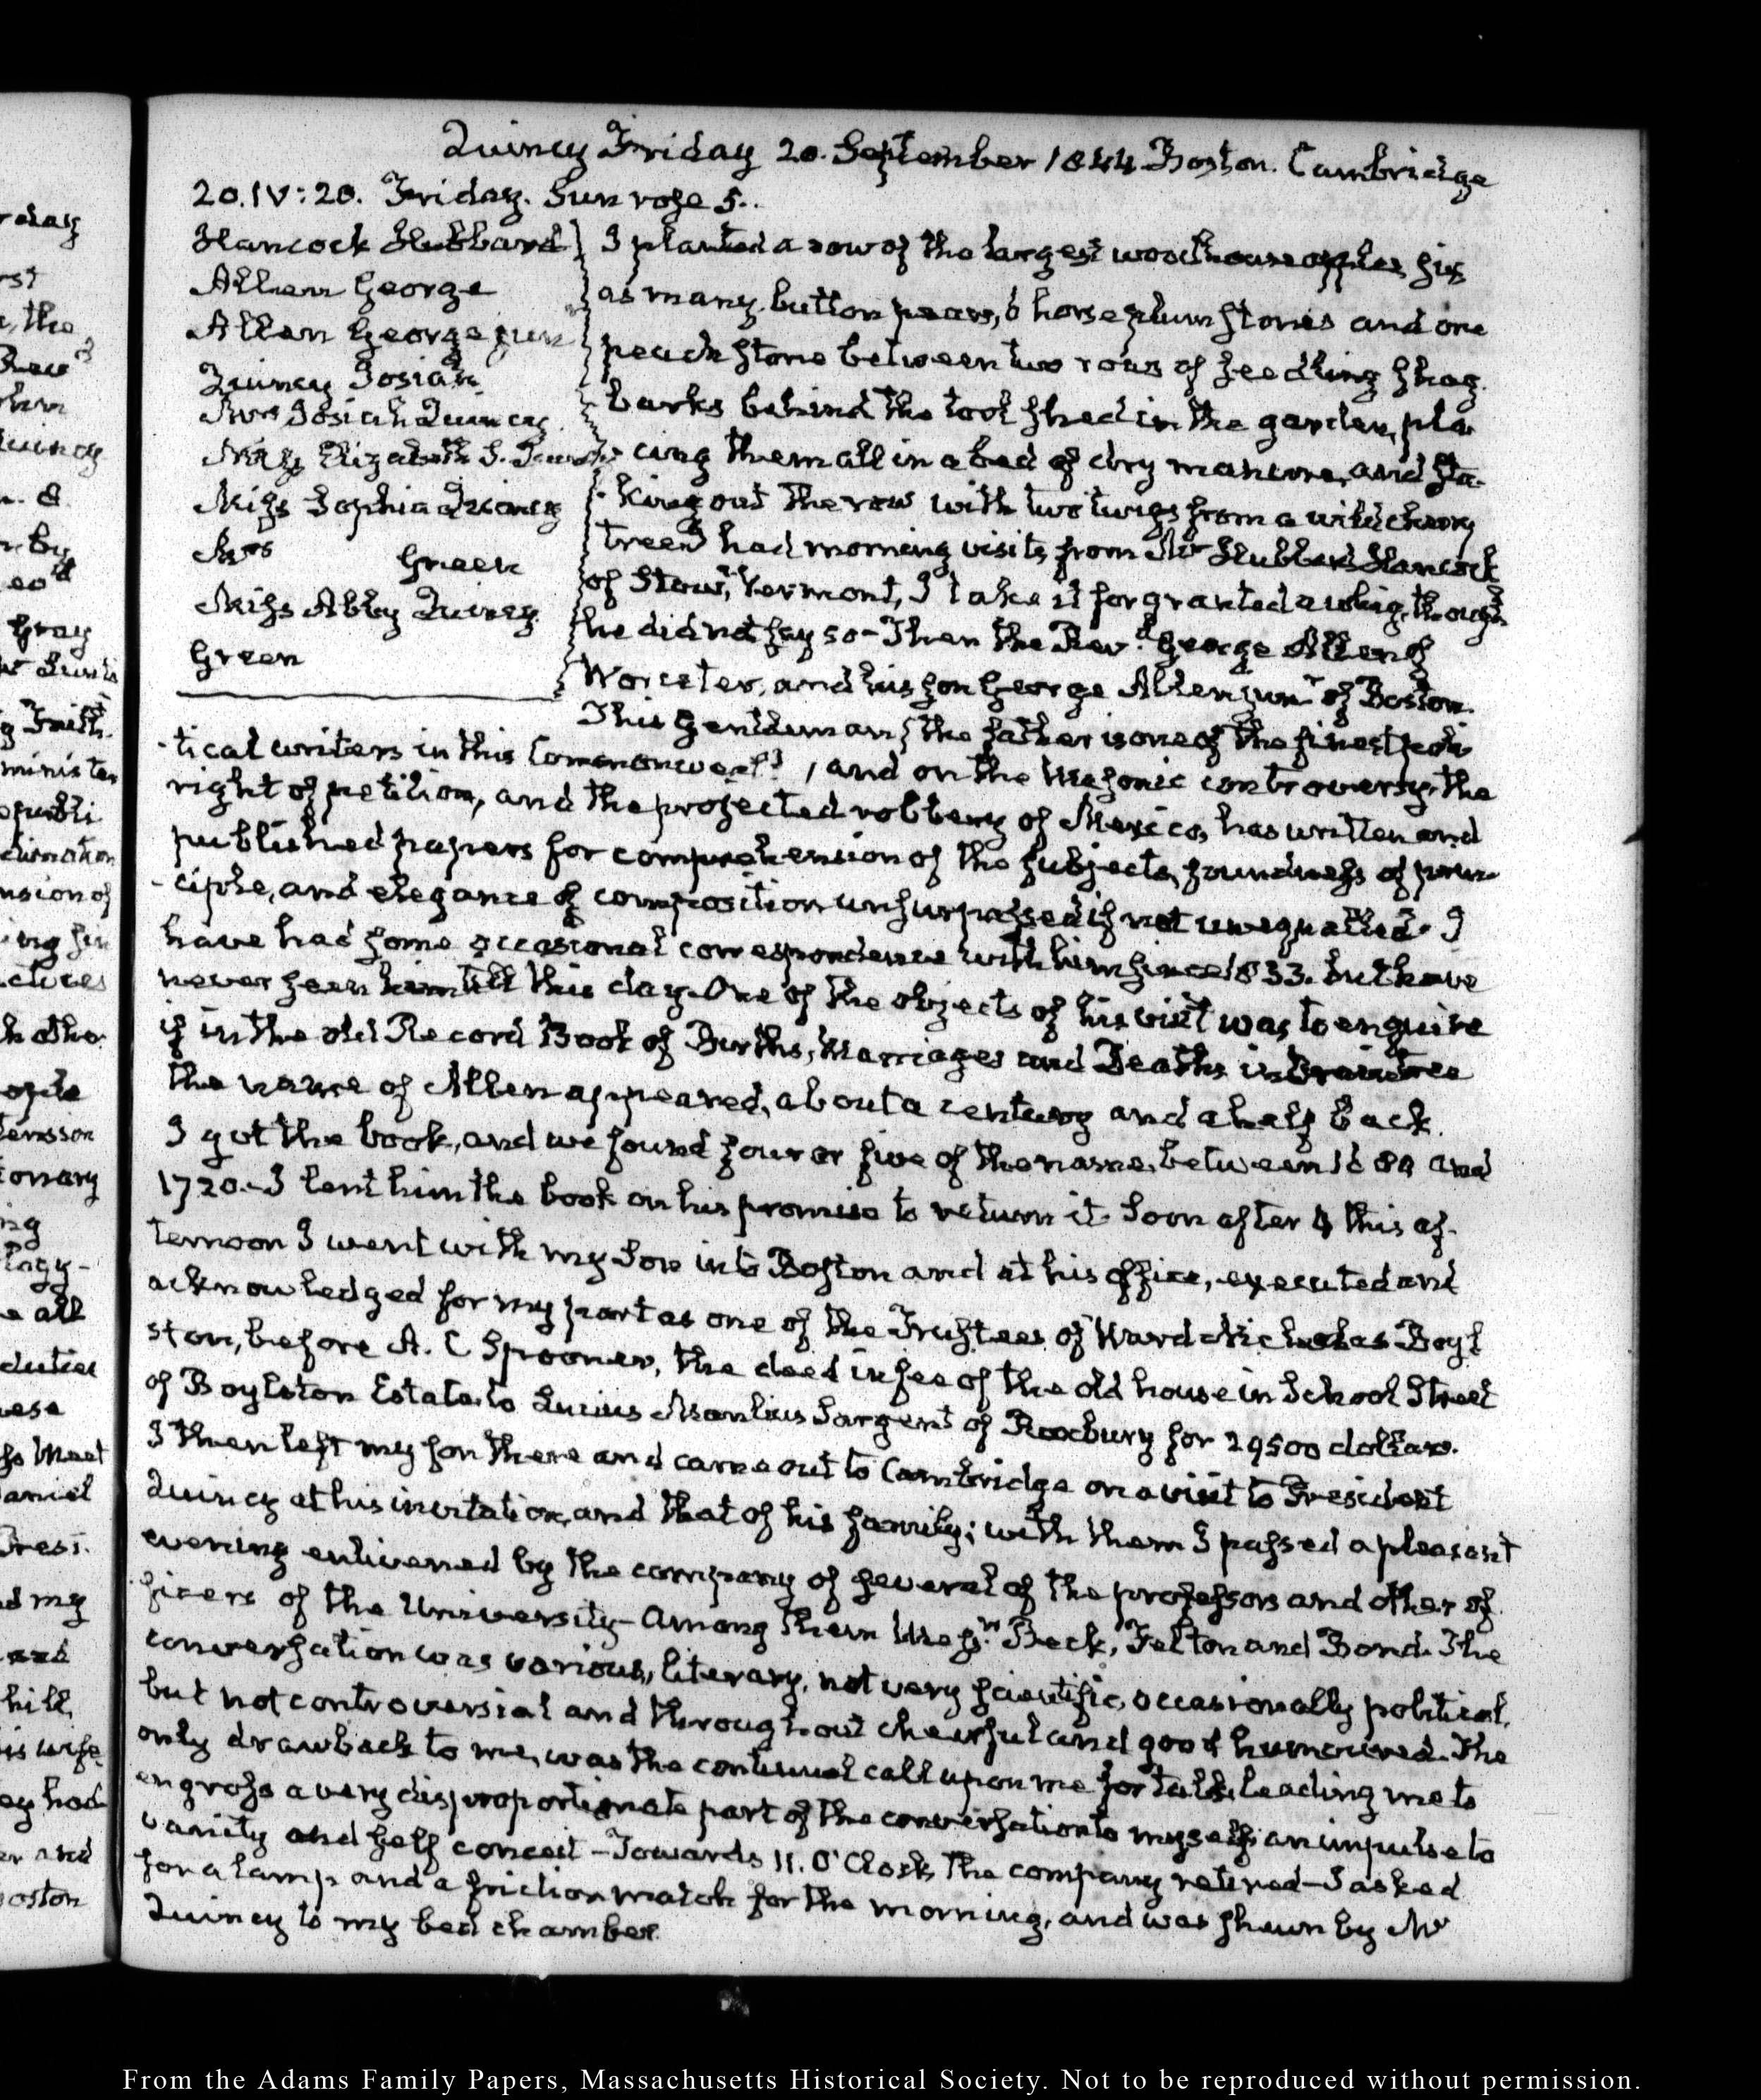 Quincy Friday 20. September 1844 Boston. Cambridge
20. IV:20. Friday. Sun rose 5..
Hancock Hubbard
Allen George
Allen George junr
Quincy Josiah
Mrs Josiah Quincy
Miss Elizabeth S. Quincy
Miss Sophia Quincy
Mrs Green
Miss Abby Quincy
Green
I planted a row of the largest woodhouse apples six
as many button pears, 6 horse plum stones and one
peach stone between two rows of seedling shag
barks behind the tool shed in the garden, pla
cing them all in a bed of dry manure, and sta-
king out the row with two twigs from a wild cherry
tree I had morning visits, from Mr Hubbard Hancock
of Stow, Vermont, I take it for granted a whig, though
he did not say so – Then the Revd. George Allen of
Worcester, and his son George Allen junr of Boston.
This Gentleman, the father is one of the finest poli
tical writers in this Commonwealth, and on the Masonic controversy, the
right of petition, and the projected robbery of Mexico, has written and
published papers for comprehension of the subjects, soundness of prin-
-ciple, and elegance of composition unsurpassed if not unequalled. I
have had some occasional correspondence with him since 1833. but have
never seen him till this day. One of the objects of his visit was to enquire
if in the old Record Book of Births, Marriages and Deaths in Braintree
the name of Allen appeared, about a century and a half back.
I got the book, and we found four or five of the name, between 1689 and
1720. – I lent him the book on his promise to return it Soon after 4 this af-
ternoon I went with my Son into Boston and at his office, executed and
acknowledged for my part as one of the Trustees of Ward Nicholas Boyl
ston, before A. C Spooner, the deed in fee of the old house in School Street
of Boylston Estate to Lucius Manlius Sargent of Roxbury for 29500 dollars.
I then left my son there and came out to Cambridge on a visit to President
Quincy at his invitation, and that of his family; with them I passed a pleasant
evening enlivened by the company of several of the professors and other of
ficers of the University – Among them Messrs Beck, Felton and Bond. The
conversation was various, literary, not very scientific, occasionally political,
but not controversial and throughout cheerful and good humoured. The
only drawback to me, was the continual call upon me for talk, leading me to
engross a very disproportionate part of the conversation to myself; an impulse to
vanity and self conceit – Towards 11. O'Clock the company retired – I asked
for a lamp and a friction match for the morning, and was shewn by Mr
Quincy to my bed chamber.
From the Adams Family Papers, Massachusetts Historical Society. Not to be reproduced without permission.